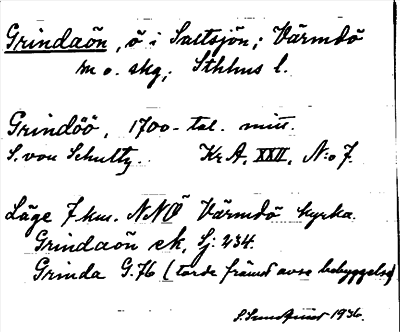 Grindaön, ö i Saltsjön; Värmdö
m o. skg; Sthlms l.
Grindöö, 1700-tal. mitt.
S. von Schultz. Kr A, XXII, N:o 7.
Läge 7 km. NNÖ Värmdö kyrka.
Grindaön ek, Sj: 234.
Grinda G.76 (torde främst avse bebyggelse)
1936.